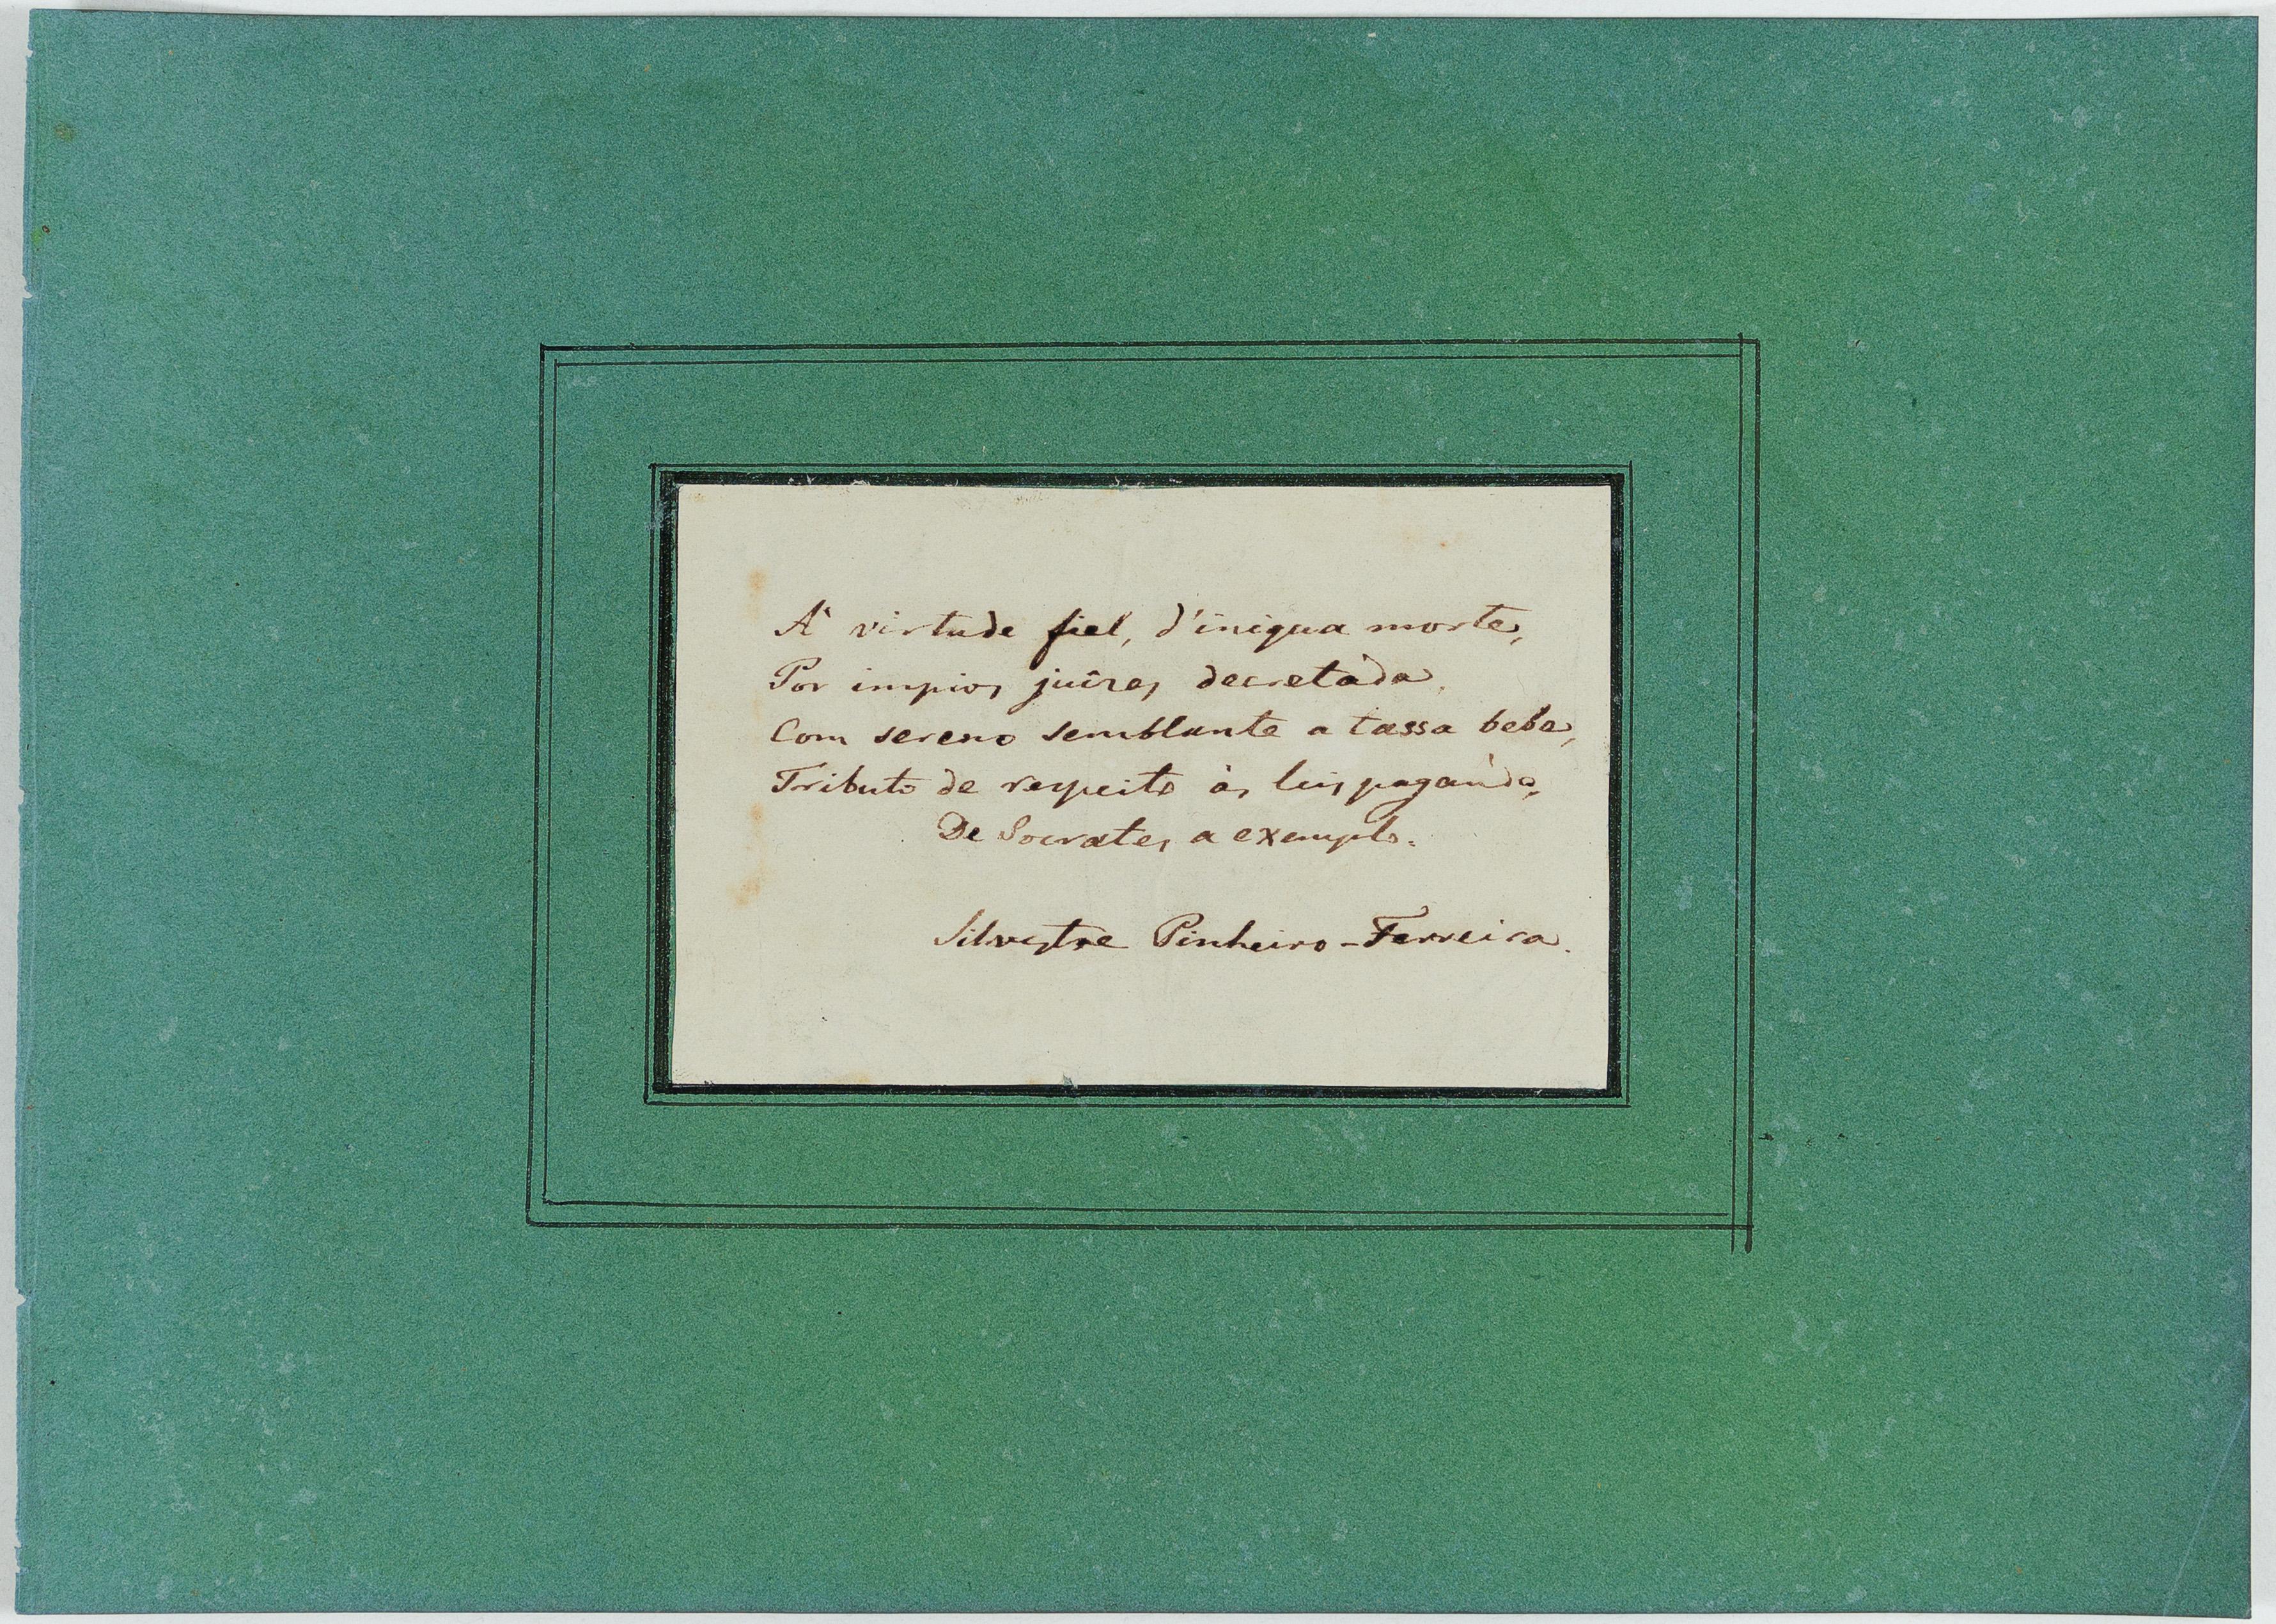 A' virtude fiel, d'iniqua morte,
Por impios juizes decretada,
Com sereno semblante a tassa bebe,
Tributo de respeito às leis pagando,
De Socrates a exemplo.
Silvestre Pinheiro-Ferreira.